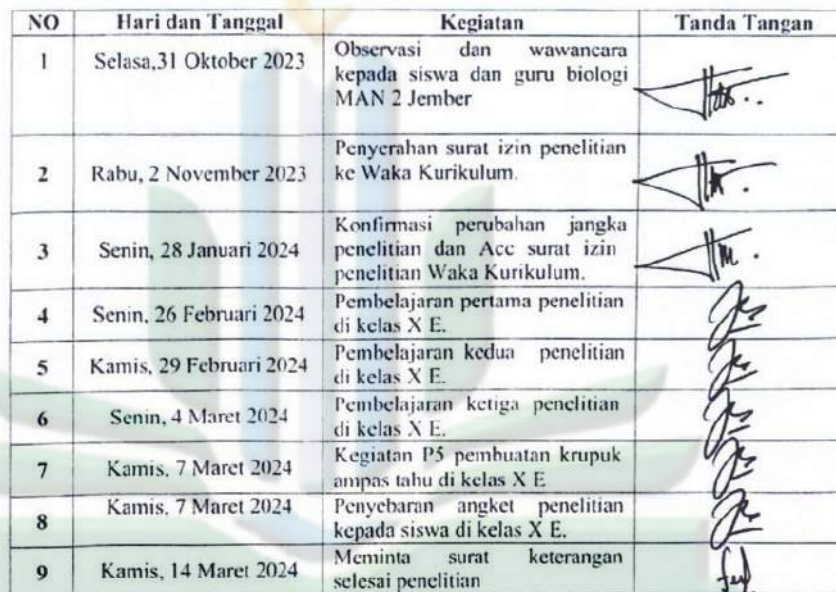 NO Hari dan Tanggal Kegiatan Tanda Tangan
1 Selasa,31 Oktober 2023 Observasi dan wawancara
kepada siswa dan guru biologi
MAN 2 Jember
2 Rabu, 2 November 2023 Penyerahan surat izin penelitian
ke Waka Kurikulum.
3 Senin, 28 Januari 2024 Konfirmasi perubahan jangka
penelitian dan Acc surat izin
penelitian Waka Kurikulum.
4 Senin, 26 Februari 2024 Pembelajaran pertama penelitian
di kelas X E.
5 Kamis, 29 Februari 2024 Pembelajaran kedua penelitian
di kelas X E.
6 Senin, 4 Maret 2024 Pembelajaran ketiga penelitian
di kelas X E.
7 Kamis, 7 Maret 2024 Kegiatan P5 pembuatan krupuk
ampas tahu di kelas X E
8 Kamis, 7 Maret 2024 Penyebaran angket penelitian
kepada siswa di kelas X E.
9 Kamis, 14 Maret 2024 Meminta surat keterangan
selesai penelitian